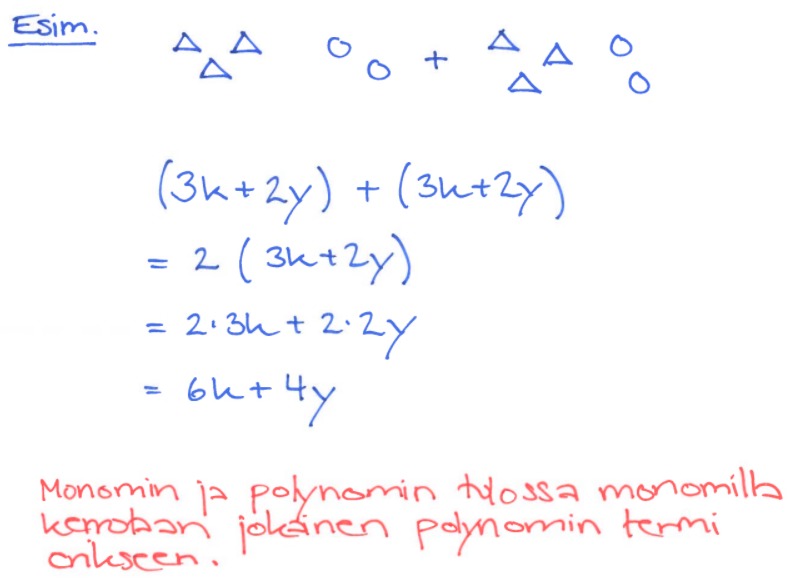 Esim.
+
(3k+2y) + (3k+2y)
= 2 (3k+2y)
= 2·3k + 2·2y
= 6k + 4y
Monomin ja polynomin tulossa monomilla
kerrotaan jokainen polynomin termi
erikseen.